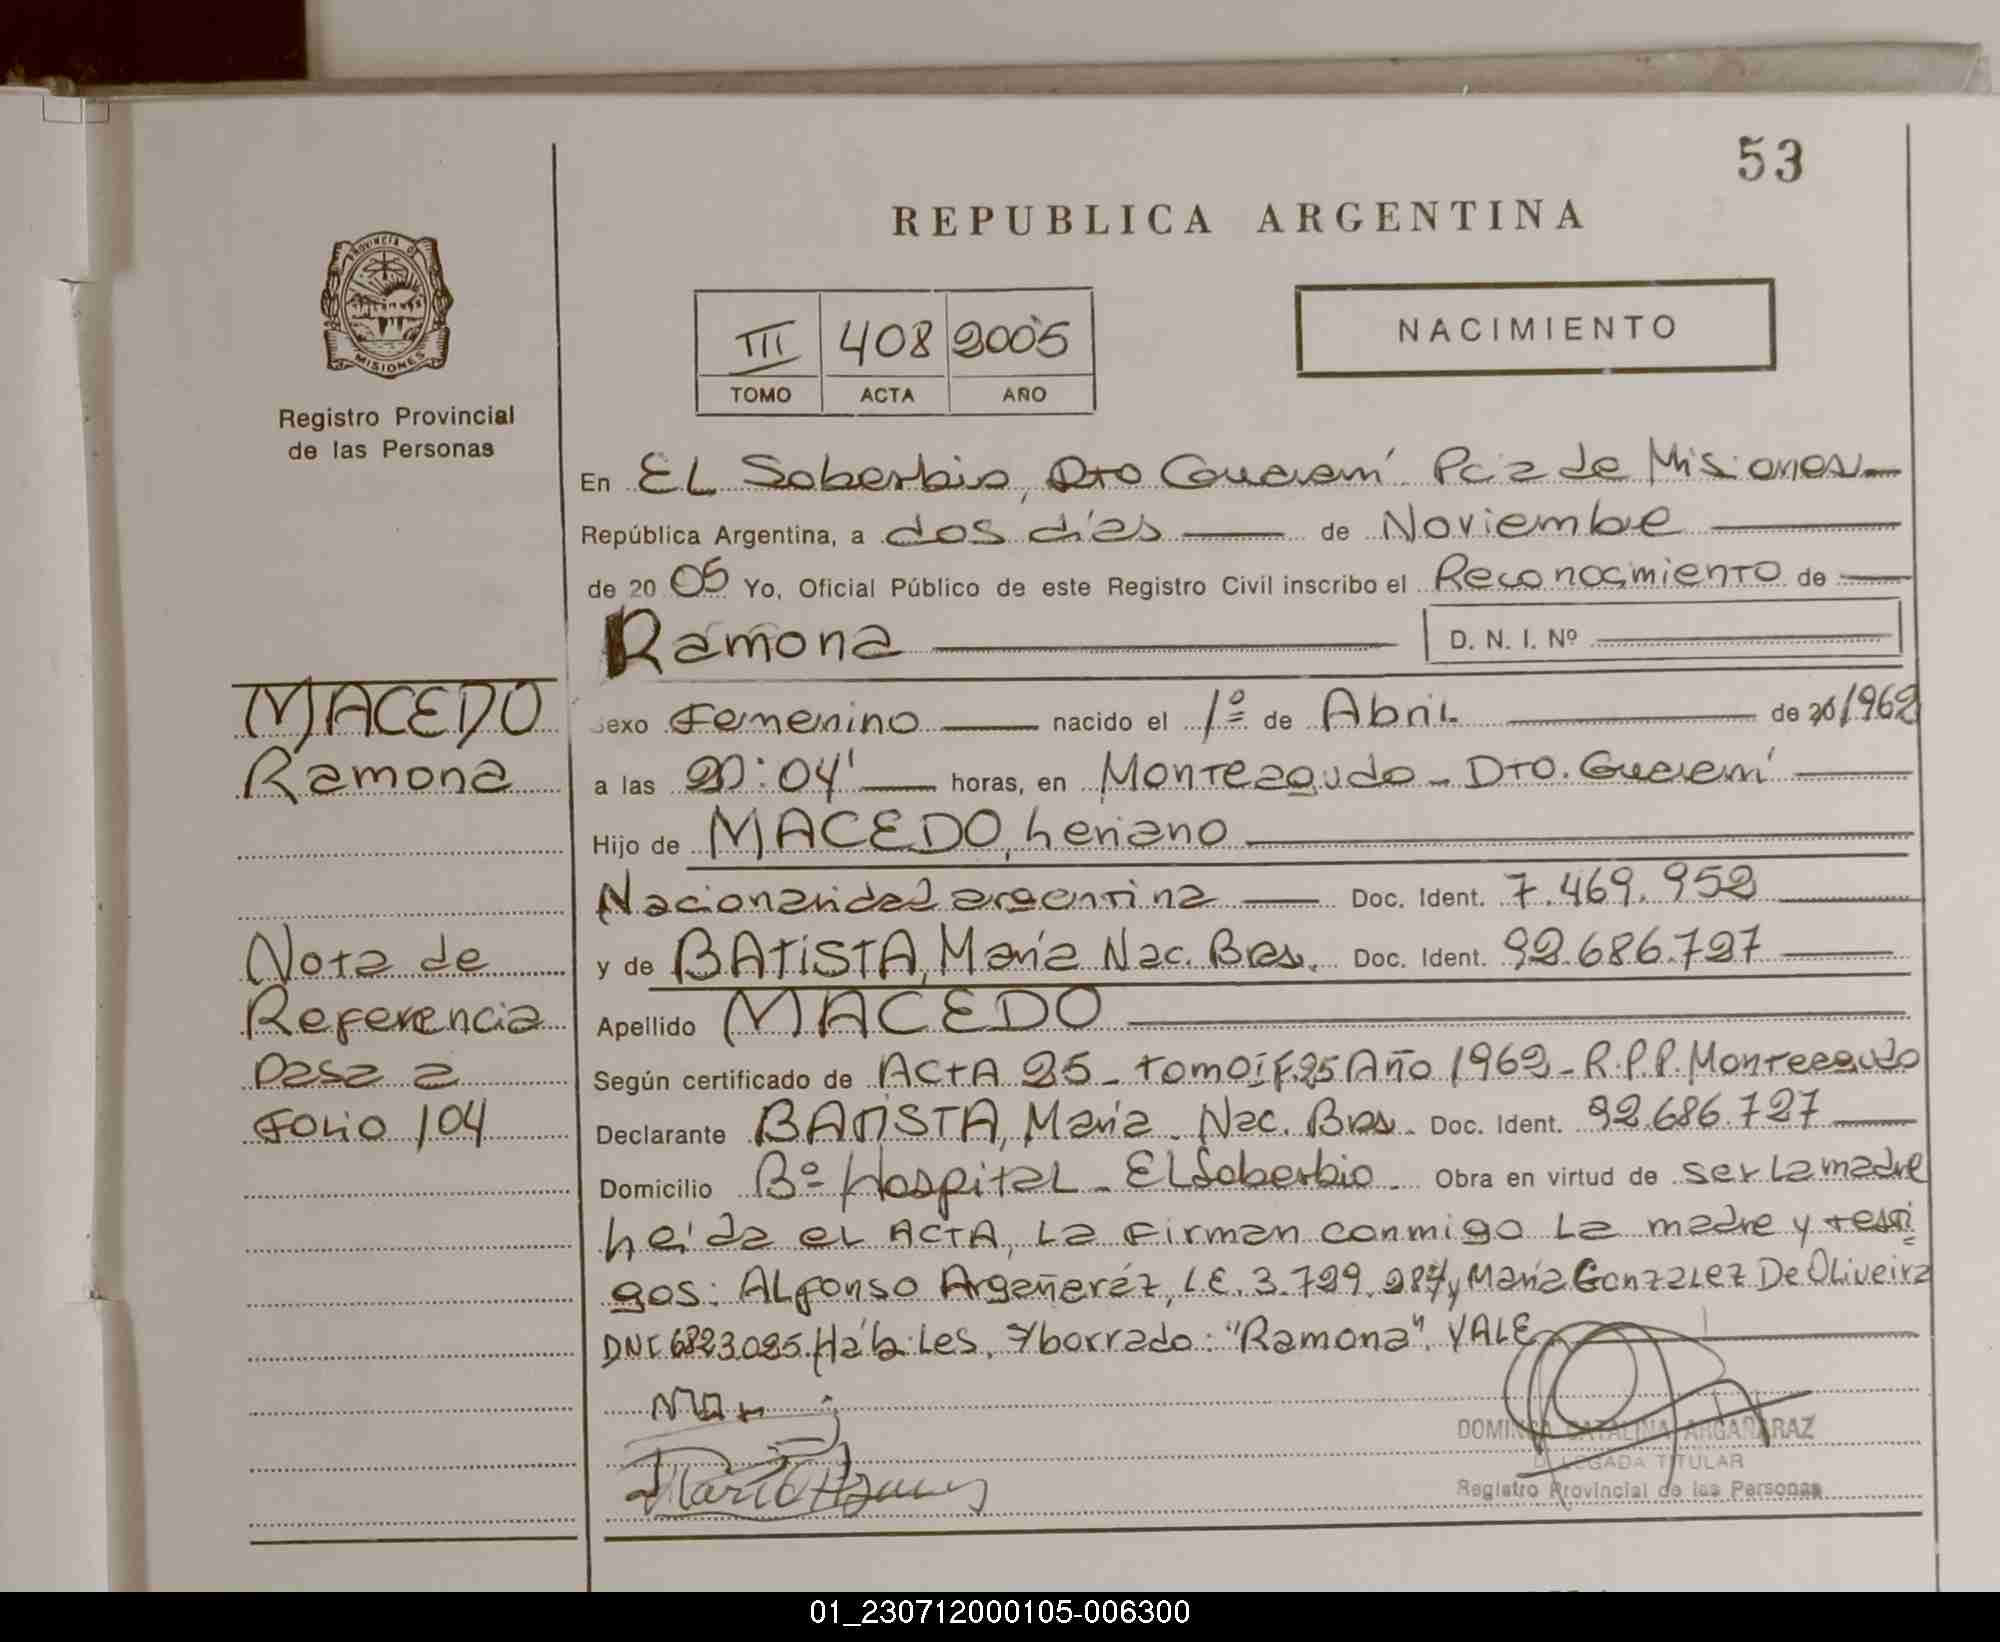 53
REPUBLICA ARGENTINA
PROVINCIA DE
MISIONES
Registro Provincial
de las Personas
III 408 2005
TOMO ACTA AÑO
NACIMIENTO
En EL Soberbio, Dto Guaraní Pcia de Misiones
República Argentina, a dos días de Noviembre
de 20 05 Yo, Oficial Público de este Registro Civil inscribo el Reconocimiento de
Ramona D. N. I. Nº
MACEDO
Ramona
Nota de
Referencia
Pasa a
Folio 104
Sexo Femenino nacido el 1º de Abril de 1962
a las 20:04' horas, en Monteagudo - Dto. Guaraní
Hijo de MACEDO,
Nacionalidad argentina Doc. Ident. 7.469.952
y de BATISTA, María Nac. Bras. Doc. Ident. 92.686.727
Apellido MACEDO
Según certificado de ACTA 25 - tomo I F.25 Año 1962 - R.P.P. Monteagudo
Declarante BATISTA, María - Nac. Bras. Doc. Ident. 92.686.727
Domicilio Bº Hospital - El Soberbio Obra en virtud de ser La madre
Leída el ACTA, La Firman conmigo La madre y testi
gos: ALfonso Argañeréz, L.E. 3.729.287 y María GonzaLez De OLiveira
DNI 6823025. Hábiles. S/borrado: "Ramona". VALE
DOMINGA CATALINA ARGAÑARAZ
DELEGADA TITULAR
Registro Provincial de las Personas
01_230712000105-006300